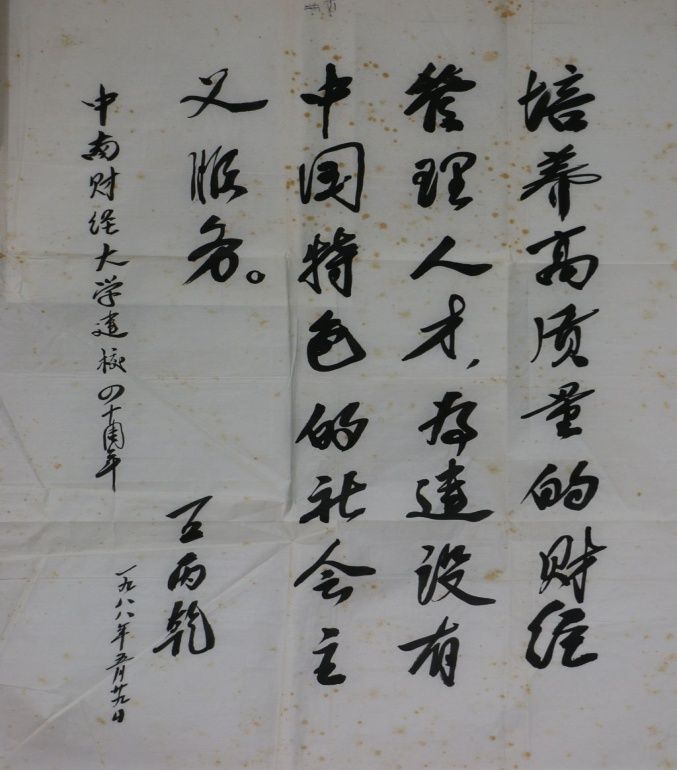 培养高质量的财经
管理人才，为建设有
中国特色的社会主
义服务。
中南财经大学建校四十周年
王丙乾
一九八八年五月廿九日